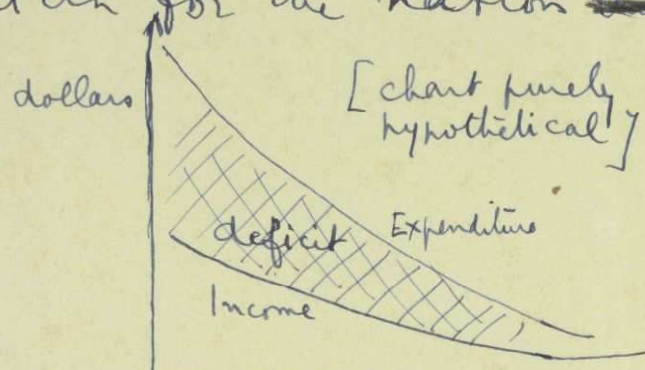 for the nation
dollars
[chart purely
hypothetical]
deficit
Expenditure
Income